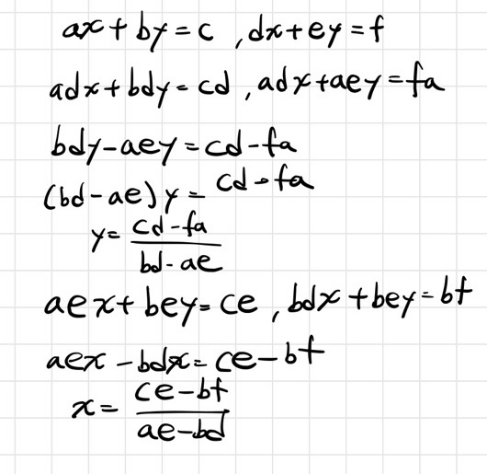 ax + by = c , dx + ey = f
adx + bdy = cd , adx + aey = fa
bdy - aey = cd - fa
(bd - ae) y = cd - fa
y = \frac{cd - fa}{bd - ae}
aex + bey = ce , bdx + bey = bf
aex - bdx = ce - bf
x = \frac{ce - bf}{ae - bd}